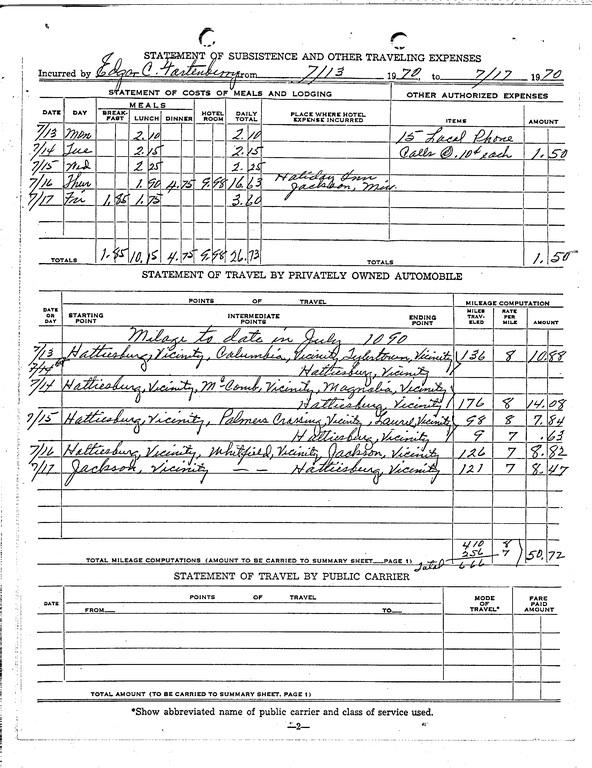 STATEMENT OF SUBSISTENCE AND OTHER TRAVELING EXPENSES
Incurred by Edgar C. Fortenberry from 7/13 1970, to 7/17 1970
STATEMENT OF COSTS OF MEALS AND LODGING OTHER AUTHORIZED EXPENSES
DATE DAY MEALS BREAK-FAST LUNCH DINNER HOTEL ROOM DAILY TOTAL PLACE WHERE HOTEL EXPENSE INCURRED ITEMS AMOUNT
7/13 Mon 2.10 2.10 15 Local Phone
7/14 Tue 2.15 2.15 Calls @ .10¢ each 1.50
7/15 Wed 2 25 2.25
7/16 Thur 1.90 4.75 9.98 16.63 Holiday Inn
Jackson, Miss.
7/17 Fri 1.85 1.75 3.60
TOTALS 1.85 10.15 4.75 9.98 26.73 TOTALS 1.50
STATEMENT OF TRAVEL BY PRIVATELY OWNED AUTOMOBILE
DATE OR DAY POINTS OF TRAVEL MILEAGE COMPUTATION
STARTING POINT INTERMEDIATE POINTS ENDING POINT MILES TRAV-ELED RATE PER MILE AMOUNT
Milage to date in July 1090
7/13 Hattiesburg, Vicinity, Columbia, Vicinity, Tylertown, Vicinity 136 8 10.88
Hattiesburg, Vicinity
7/14 Hattiesburg, Vicinity, McComb, Vicinity, Magnolia, Vicinity
Hattiesburg, Vicinity 176 8 14.08
7/15 Hattiesburg, Vicinity, Palmers Crossing, Vicinity, Laurel, Vicinity 98 8 7.84
Hattiesburg, Vicinity 9 7 .63
7/16 Hattiesburg, Vicinity, Whitfield, Vicinity, Jackson, Vicinity 126 7 8.82
7/17 Jackson, Vicinity — — Hattiesburg, Vicinity 121 7 8.47
410 8
256 7 50.72
TOTAL MILEAGE COMPUTATIONS (AMOUNT TO BE CARRIED TO SUMMARY SHEET—PAGE 1) Total 666
STATEMENT OF TRAVEL BY PUBLIC CARRIER
DATE POINTS OF TRAVEL MODE OF TRAVEL* FARE PAID AMOUNT
FROM— TO—
TOTAL AMOUNT (TO BE CARRIED TO SUMMARY SHEET, PAGE 1)
*Show abbreviated name of public carrier and class of service used.
—2—